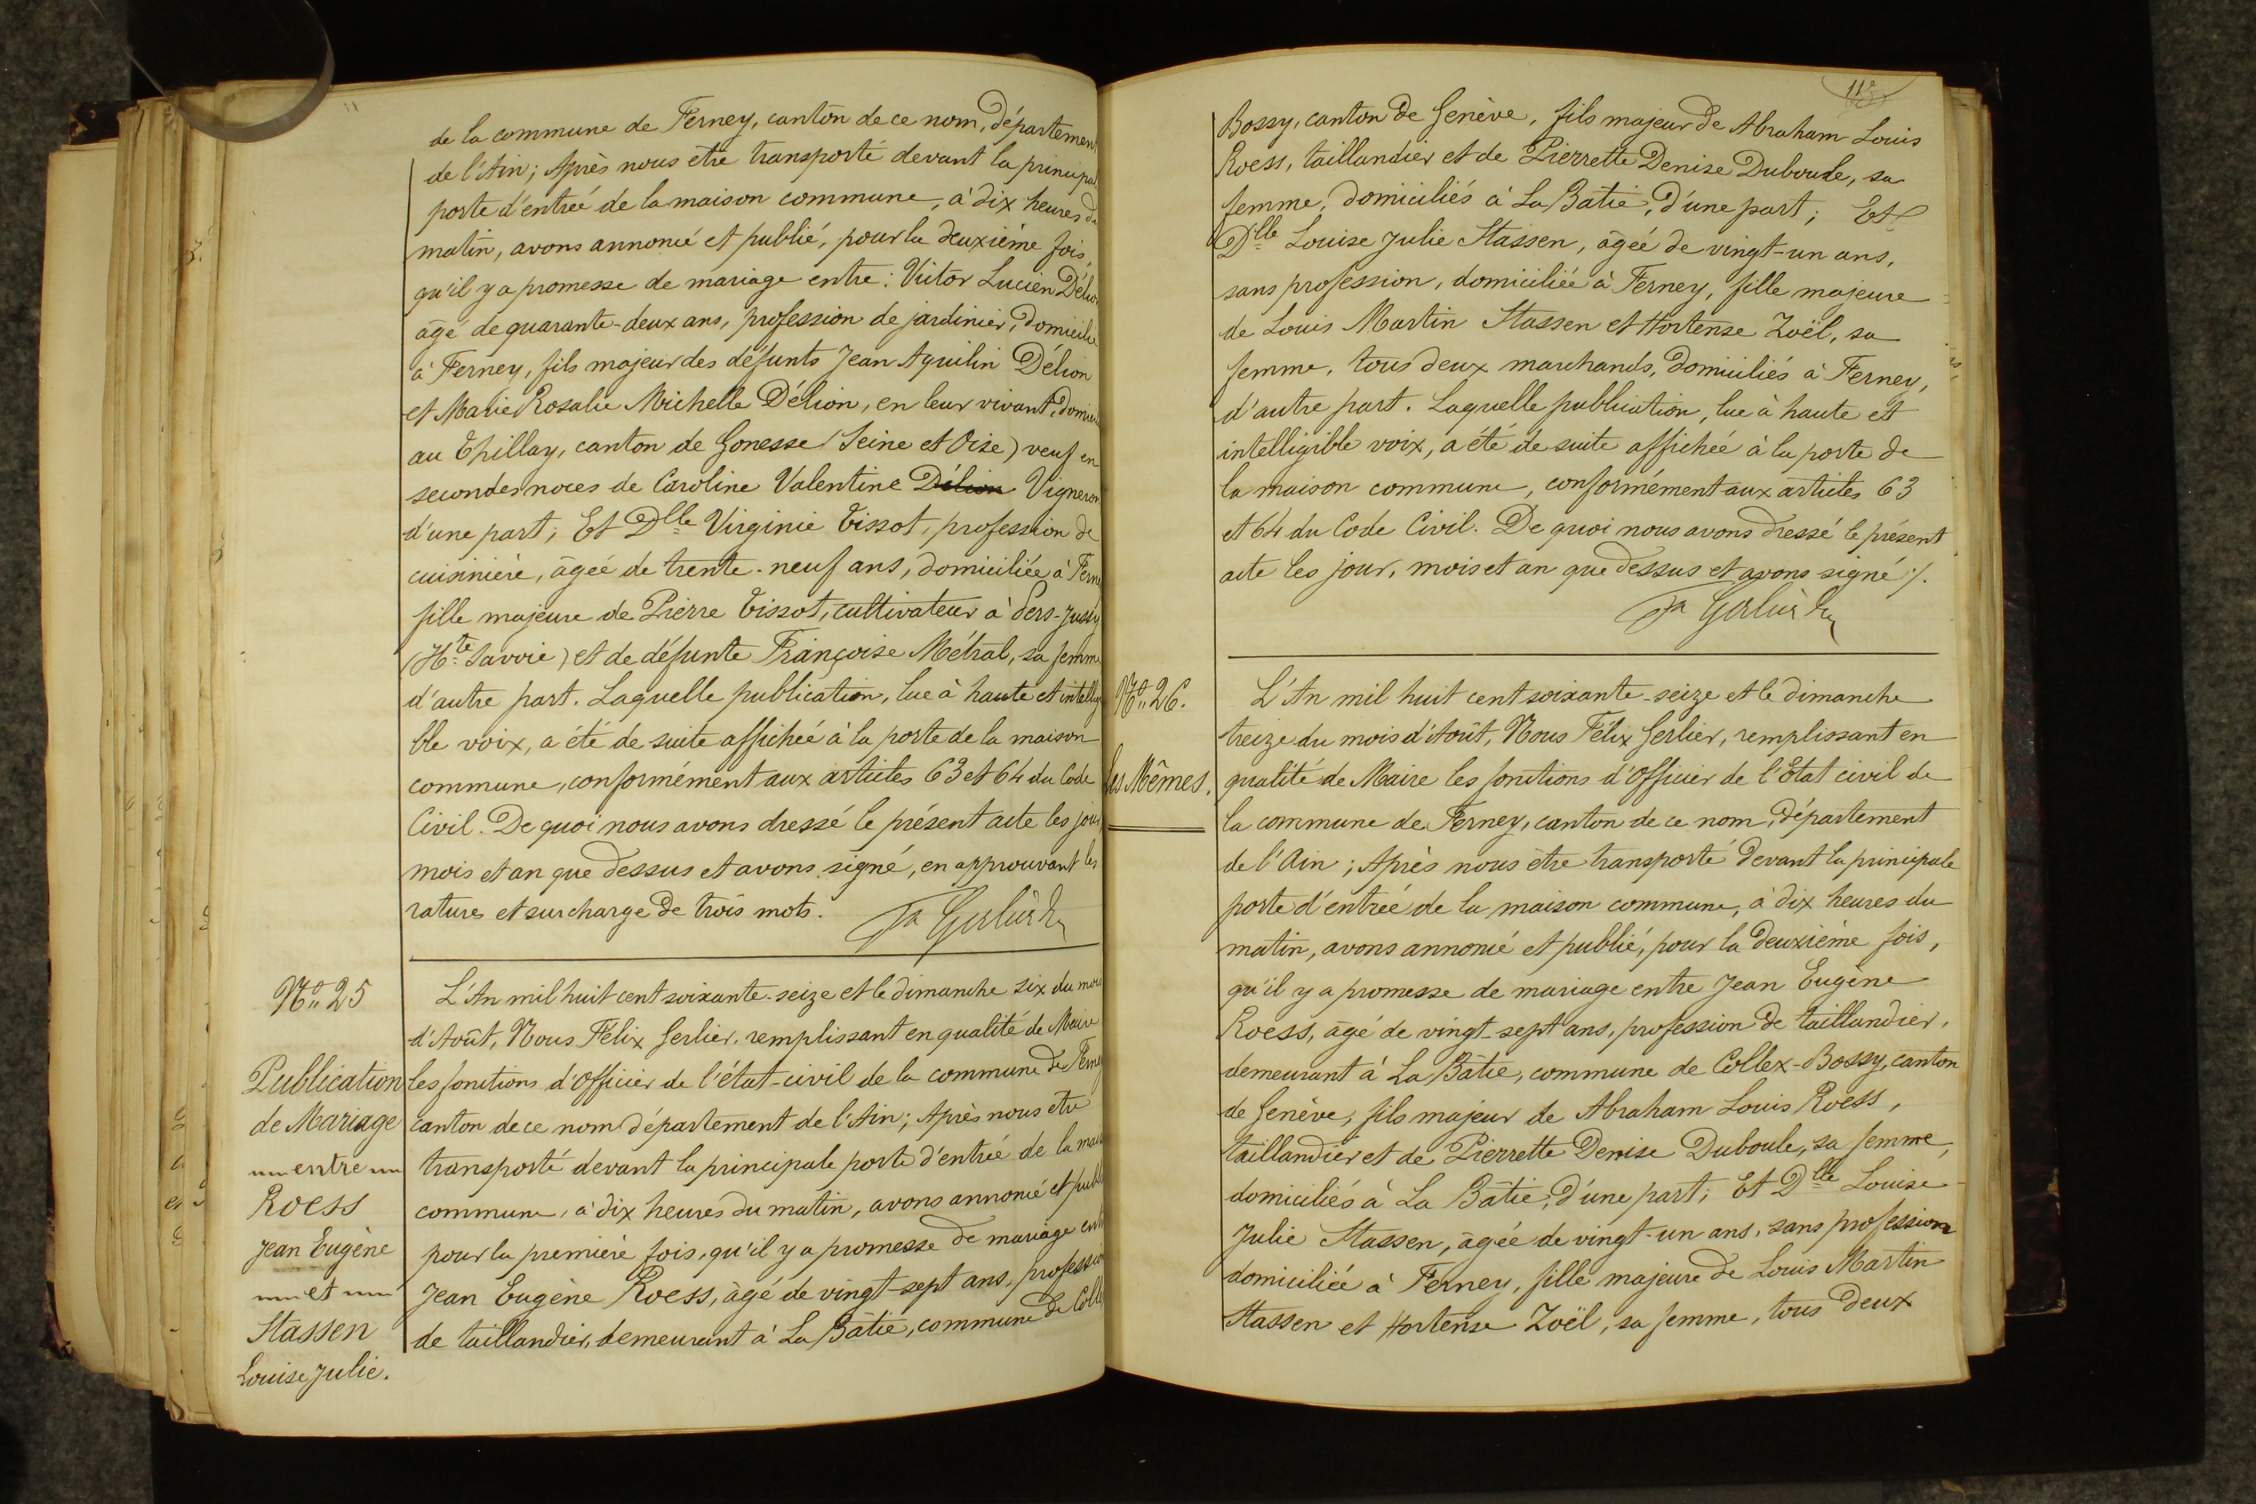 de la commune de Ferney, canton de ce nom, département
de l'Ain; Après nous être transporté devant la principal
porte d'entrée de la maison commune, à dix heures du
matin, avons annoncé et publié, pour la deuxième fois,
qu'il y a promesse de mariage entre: Victor Lucien Délion
âgé de quarante-deux ans, profession de jardinier, domicilié
à Ferney, fils majeur des défunts Jean Aquilin Délion
et Marie Rosalie Michelle Délion, en leur vivant, domici
au Thillay, canton de Gonesse (Seine et Oise) veuf en
secondes noces de Caroline Valentine Délion Vigneron
d'une part; Et Dlle Virginie Tissot, profession de
cuisinière, âgée de trente-neuf ans, domiciliée à Ferne
fille majeure de Pierre Tissot, cultivateur à Pers-Jussy
(Hte Savoie) et de défunte Françoise Métral, sa femme
d'autre part. Laquelle publication, lue à haute et intelligi
ble voix, a été de suite affichée à la porte de la maison
commune, conformément aux articles 63 et 64 du Code
Civil. De quoi nous avons dressé le présent acte les jour
mois et an que dessus et avons signé, en approuvant les
ratures et surcharge de trois mots.
Fx Gerlier
No 25
Publication
de Mariage
entre
Roess
Jean Eugène
et
Stassen
Louise Julie.
L'An mil huit cent soixante-seize et le dimanche six du mois
d'Août, Nous Félix Gerlier, remplissant en qualité de Maire
les fonctions d'Officier de l'état-civil de la commune de Ferney
canton de ce nom département de l'Ain; Après nous être
transporté devant la principale porte d'entrée de la mais
commune, à dix heures du matin, avons annoncé et publ
pour la première fois, qu'il y a promesse de mariage entr
Jean Eugène Roess, âgé de vingt-sept ans, profession
de taillandier, demeurant à La Bâtie, commune de Coll
113
Bossy, canton de Genève, fils majeur de Abraham Louis
Roess, taillandier et de Pierrette Denise Duboule, sa
femme, domiciliés à La Bâtie, d'une part; Et
Dlle Louise Julie Stassen, âgée de vingt-un ans,
sans profession, domiciliée à Ferney, fille majeure
de Louis Martin Stassen et Hortense Zoël, sa
femme, tous deux marchands, domiciliés à Ferney,
d'autre part. Laquelle publication, lue à haute et
intelligible voix, a été de suite affichée à la porte de
la maison commune, conformément aux articles 63
et 64 du Code Civil. De quoi nous avons dressé le présent
acte les jour, mois et an que dessus et avons signé ./.
Fx Gerlier
No 26.
Les Mêmes.
L'An mil huit cent soixante-seize et le dimanche
treize du mois d'Août, Nous Félix Gerlier, remplissant en
qualité de Maire les fonctions d'Officier de l'Etat civil de
la commune de Ferney, canton de ce nom, département
de l'Ain; Après nous être transporté devant la principale
porte d'entrée de la maison commune, à dix heures du
matin, avons annoncé et publié, pour la deuxième fois,
qu'il y a promesse de mariage entre Jean Eugène
Roess, âgé de vingt-sept ans, profession de taillandier,
demeurant à La Bâtie, commune de Collex-Bossy, canton
de Genève, fils majeur de Abraham Louis Roess,
taillandier et de Pierrette Denise Duboule, sa femme,
domiciliés à La Bâtie, d'une part; Et Dlle Louise
Julie Stassen, âgée de vingt-un ans, sans profession
domiciliée à Ferney, fille majeure de Louis Martin
Stassen et Hortense Zoël, sa femme, tous deux